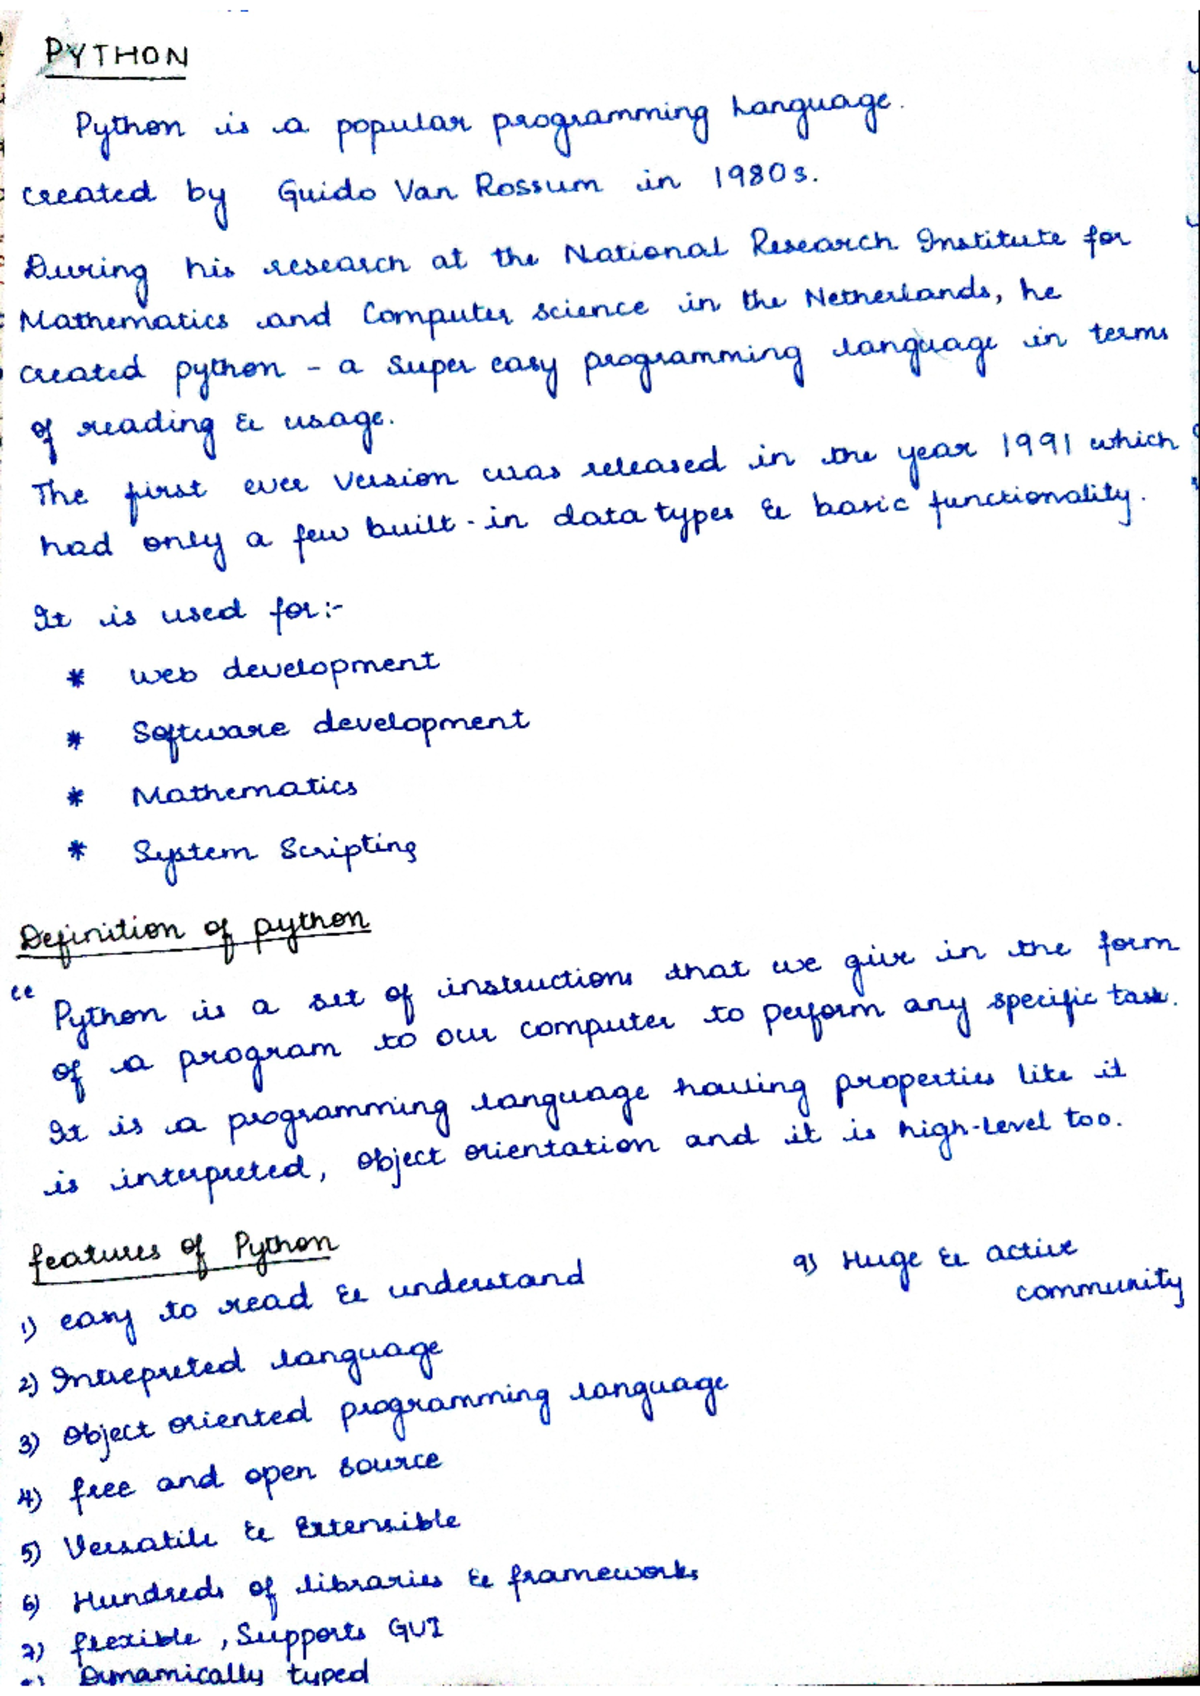 PYTHON
Python is a popular programming Language.
created by Guido Van Rossum in 1980s.
During his research at the National Research Institute for
Mathematics and Computer science in the Netherlands, he
created python - a super easy programming language in terms
of reading & usage.
The first ever version was released in the year 1991 which
had only a few built-in data types & basic functionality.
It is used for:-
* web development
* Software development
* Mathematics
* System Scripting
Definition of python
“ Python is a set of instructions that we give in the form
of a program to our computer to perform any specific task.
It is a programming language having properties like it
is interpreted, object orientation and it is high-level too.
features of Python
1) easy to read & understand
2) Intrepreted language
3) Object oriented programming language
4) free and open source
5) Versatile & Extensible
6) Hundreds of libraries & frameworks
7) flexible, Supports GUI
Dynamically typed
9) Huge & active
community